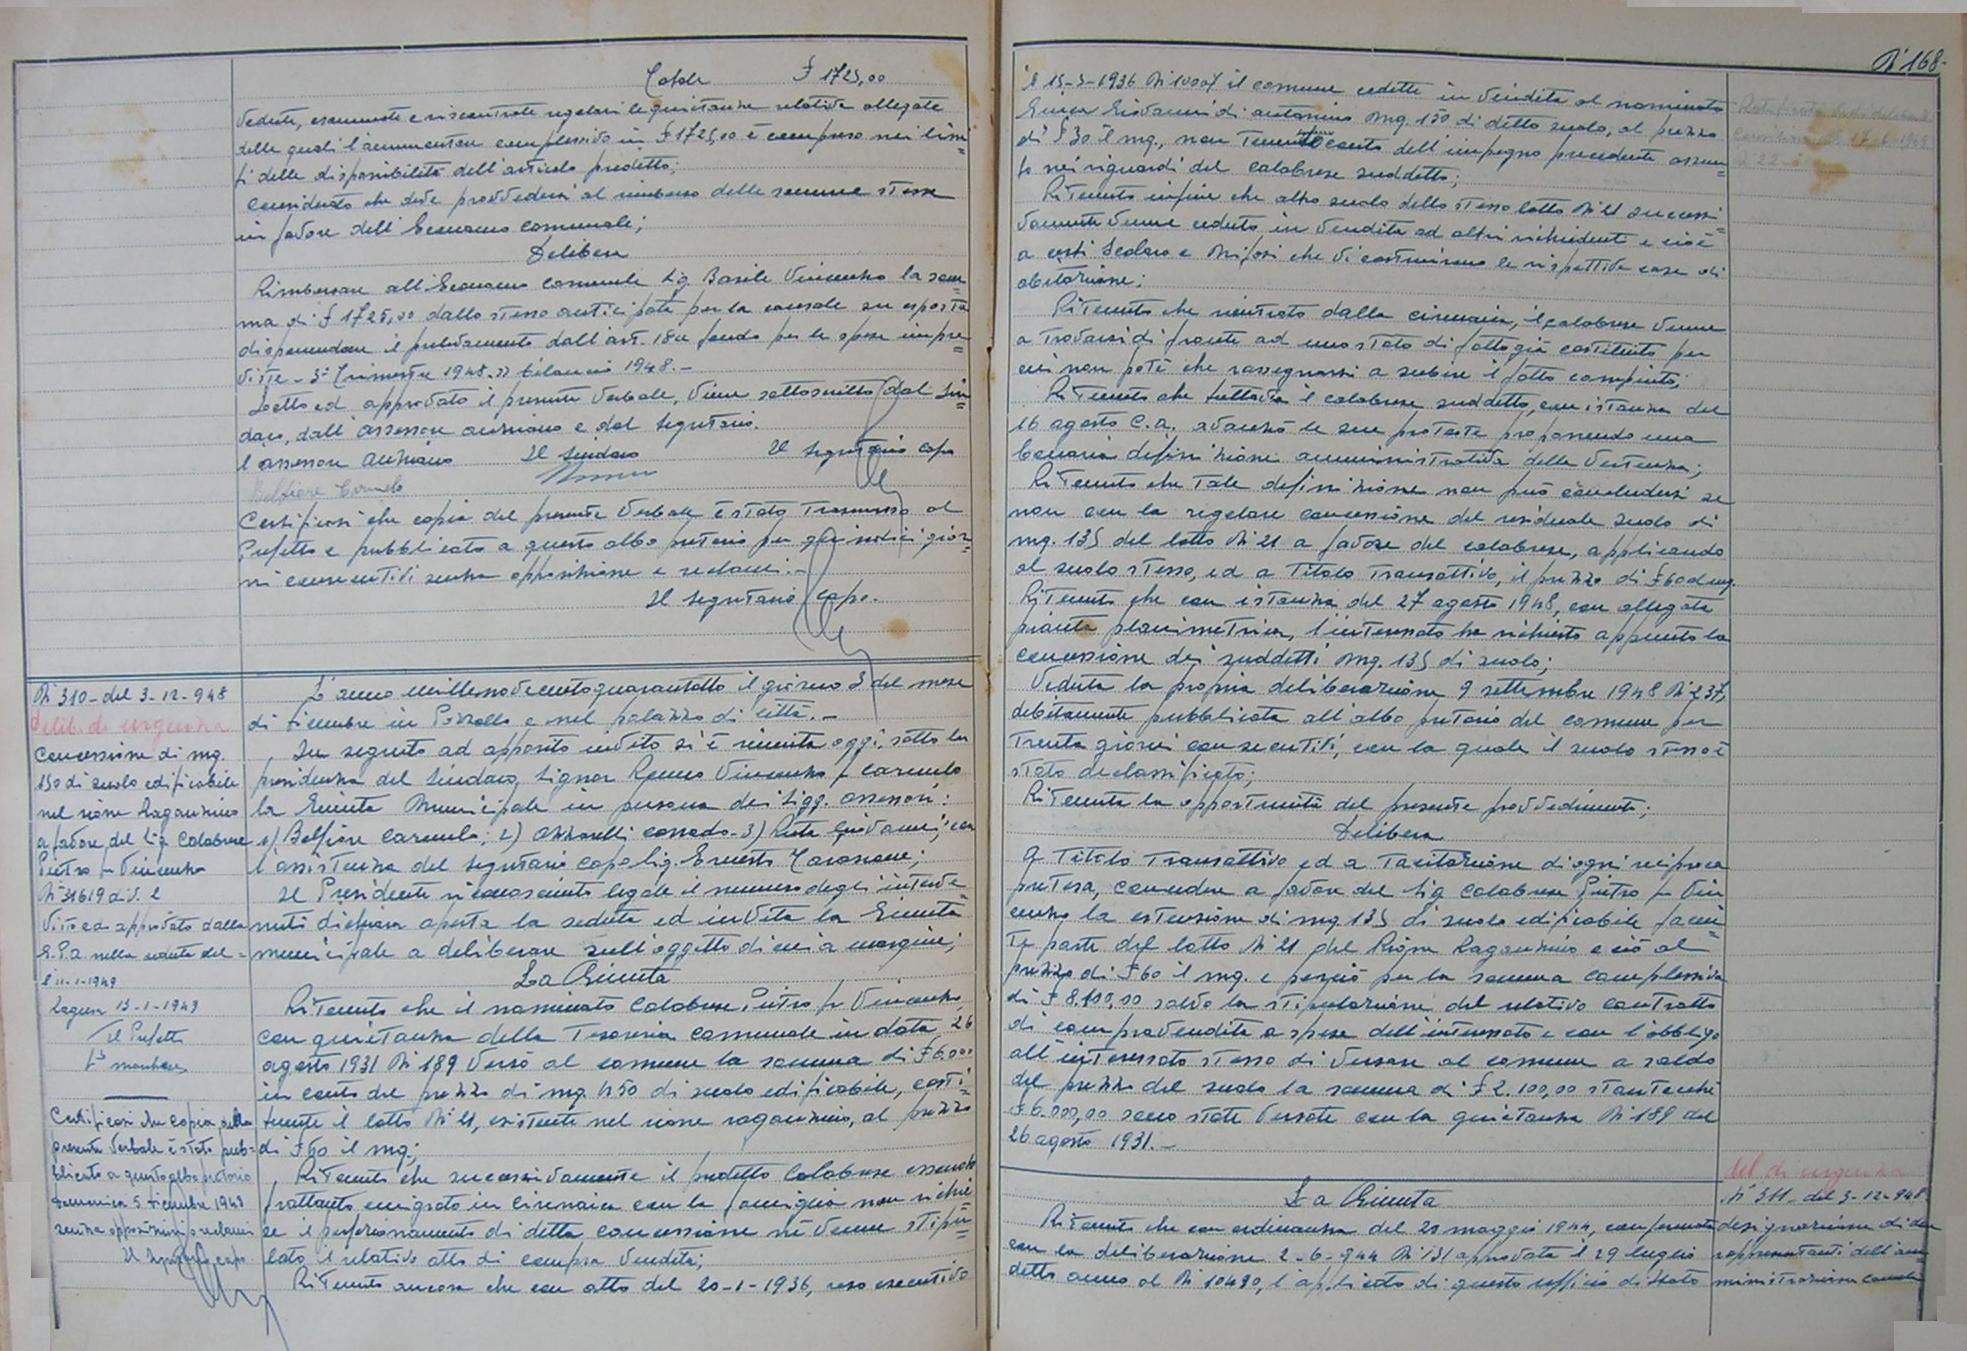 Totale £ 1725,00
Vedute, esaminate e riscontrate regolari le quietanze relative allegate
delle quali l'ammontare complessivo in £ 1725,00 è compreso nei limi=
ti delle disponibilità dell'articolo predetto;
Considerato che deve provvedersi al rimborso delle somme stesse
in favore dell'Economo comunale;
Delibera
Rimborsare all'Economo comunale Sig. Basile Vincenzo la som=
ma di £ 1725,00 dallo stesso anticipata per la causale su esposta
disponendone il prelevamento dall'art. 18 fondo per le spese impre=
viste - 3° Trimestre 1948 bilancio 1948.-
Letto ed approvato il presente verbale, viene sottoscritto dal Sin=
daco, dall'assessore anziano e dal segretario.
l'assessore anziano Il Sindaco Il segretario capo
Belfiore Carmelo
Certificasi che copia del presente verbale è stato trasmesso al
Prefetto e pubblicato a questo albo pretorio per quindici gior=
ni consecutivi senza opposizione e reclami.-
Il segretario capo.
N° 310 - del 3-12-948
delib. di urgenza
Concessione di mq.
150 di suolo edificabile
nel rione Raganzino
a favore del Sig. Calabrese
Pietro fu Vincenzo
N° 31619 div. 2
Visto ed approvato dalla
G.P.A. nella seduta del =
l'11-1-1949
Ragusa 13-1-1949
Il Prefetto
Certificasi che copia del
presente verbale è stato pub=
blicato a questo albo pretorio
domenica 5 dicembre 1948
senza opposizioni o reclami
Il segretario capo
L'anno millenovecentoquarantotto il giorno 3 del mese
di dicembre in Pozzallo e nel palazzo di città.-
In seguito ad apposito invito si è riunita oggi sotto la
presidenza del Sindaco, Signor Vincenzo fu Carmelo
la Giunta Municipale in persona dei Sigg. assessori:
1) Belfiore Carmelo; 2) Corrado - 3) Ruta Giovanni; con
l'assistenza del segretario capo Sig. Ernesto
Il Presidente riconosciuto legale il numero degli interve=
nuti dichiara aperta la seduta ed invita la Giunta
municipale a deliberare sull'oggetto di cui a margine;
La Giunta
Ritenuto che il nominato Calabrese Pietro fu Vincenzo
con quietanza della Tesoreria comunale in data 26
agosto 1931 N° 189 versò al comune la somma di £ 6.000
in conto del prezzo di mq. 150 di suolo edificabile, costi=
tuente il lotto N° 21, esistente nel rione raganzino, al prezzo
di £ 60 il mq;
Ritenuto che successivamente il predetto Calabrese essendo
frattanto emigrato in Cirenaica con la famiglia non richie=
se il perfezionamento di detta concessione nè venne stipu=
lato il relativo atto di compra vendita;
Ritenuto ancora che con atto del 20-1-1936, reso esecutivo
N° 168-
il 13-3-1936 N° 10007 il comune cedette in vendita al nominato
Giovanni di antonino mq. 130 di detto suolo, al prezzo
di £ 30 il mq., non tenendo conto dell'impegno precedente assun=
to nei riguardi del Calabrese suddetto;
Ritenuto infine che altro suolo dello stesso lotto N° 21 successi=
vamente venne ceduto in vendita ad altri richiedenti e cioè
a certi Scolaro e che vi costruirono le rispettive case di
abitazione;
Ritenuto che rientrato dalla cirenaica, il calabrese venne
a trovarsi di fronte ad uno stato di fatto già costituito per
cui non potè che rassegnarsi a subire il fatto compiuto;
Ritenuto che tuttavia il calabrese suddetto, con istanza del
16 agosto c.a. avanzò le sue proteste proponendo una
bonaria definizione amministrativa della vertenza;
Ritenuto che tale definizione non può concludersi se
non con la regolare concessione del residuale suolo di
mq. 135 del lotto N° 21 a favore del calabrese, applicando
al suolo stesso, ed a titolo transattivo, il prezzo di £ 60 al mq.
Ritenuto che con istanza del 27 agosto 1948, con allegata
pianta planimetrica, l'interessato ha richiesto appunto la
concessione dei suddetti mq. 135 di suolo;
Veduta la propria deliberazione 9 settembre 1948 N° 237,
debitamente pubblicata all'albo pretorio del comune per
trenta giorni consecutivi, con la quale il suolo stesso è
stato declassificato;
Ritenuta la opportunità del presente provvedimento;
Delibera
A titolo transattivo ed a tacitazione di ogni reciproca
pretesa, concedere a favore del Sig. Calabrese Pietro fu Vin
cenzo la estensione di mq. 135 di suolo edificabile facen=
te parte del lotto N° 21 del Rione Raganzino e ciò al
prezzo di £ 60 il mq. e perciò per la somma complessiva
di £ 8.100,00 salvo la stipulazione del relativo contratto
di compravendita a spese dell'interessato e con l'obbligo
all'interessato stesso di versare al comune a saldo
del prezzo del suolo la somma di £ 2.100,00 stantechè
£ 6.000,00 sono state versate con la quietanza N° 189 del
26 agosto 1931.-
del. di urgenza
N° 311 - del 3-12-948
designazione di due
rappresentanti dell'am=
ministrazione comunale
La Giunta
Ritenuto che con ordinanza del 20 maggio 1944, confermata
con la deliberazione 2-6-944 N° 131 approvata il 29 luglio
detto anno al N° 10490, l'applicato di questo ufficio di stato